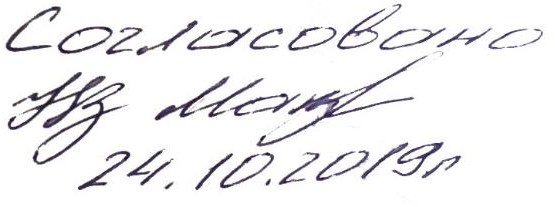 Согласовано
24.10.2019г